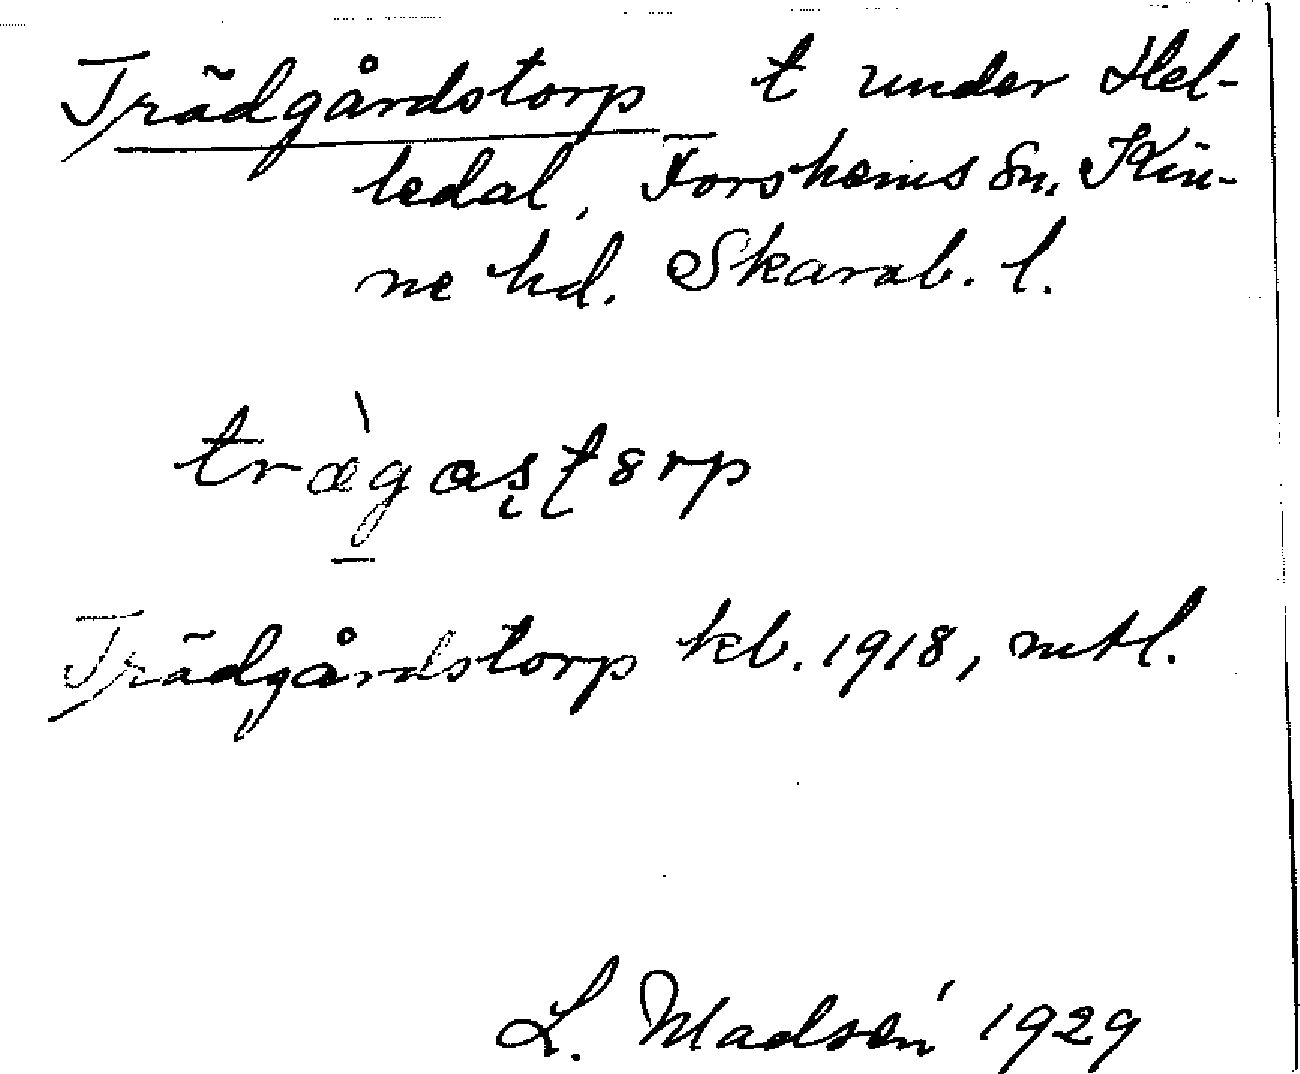 Trädgårdstorp t under Hel-
ledal, Forshems sn, Kin-
ne hd. Skarab. l.
træ̀gastorp
Trädgårdstorp kb. 1918, mtl.
L. Madsén 1929